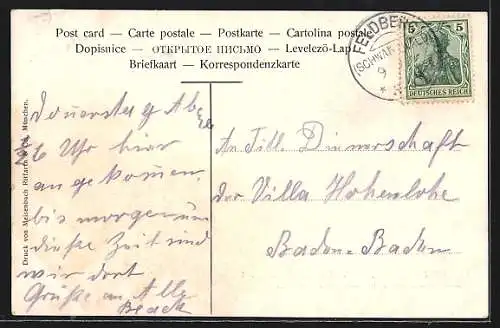 Post card — Carte postale — Postkarte — Cartolina postale
Dopisnice — ОТКРЫТОЕ ПИСЬМО — Levelező-Lap
Briefkaart — Korrespondenzkarte
FELDBE
(SCHWARZ
9
5 5
DEUTSCHES REICH
Druck von Meisenbach Riffarth & Co., München.
Donnerstag Abe
6 Uhr hier
angekommen.
bis morgen um
diese Zeit sind
wir dort
Grüße an Alle
An Dienerschaft
der Villa Hohenlohe
Baden-Baden